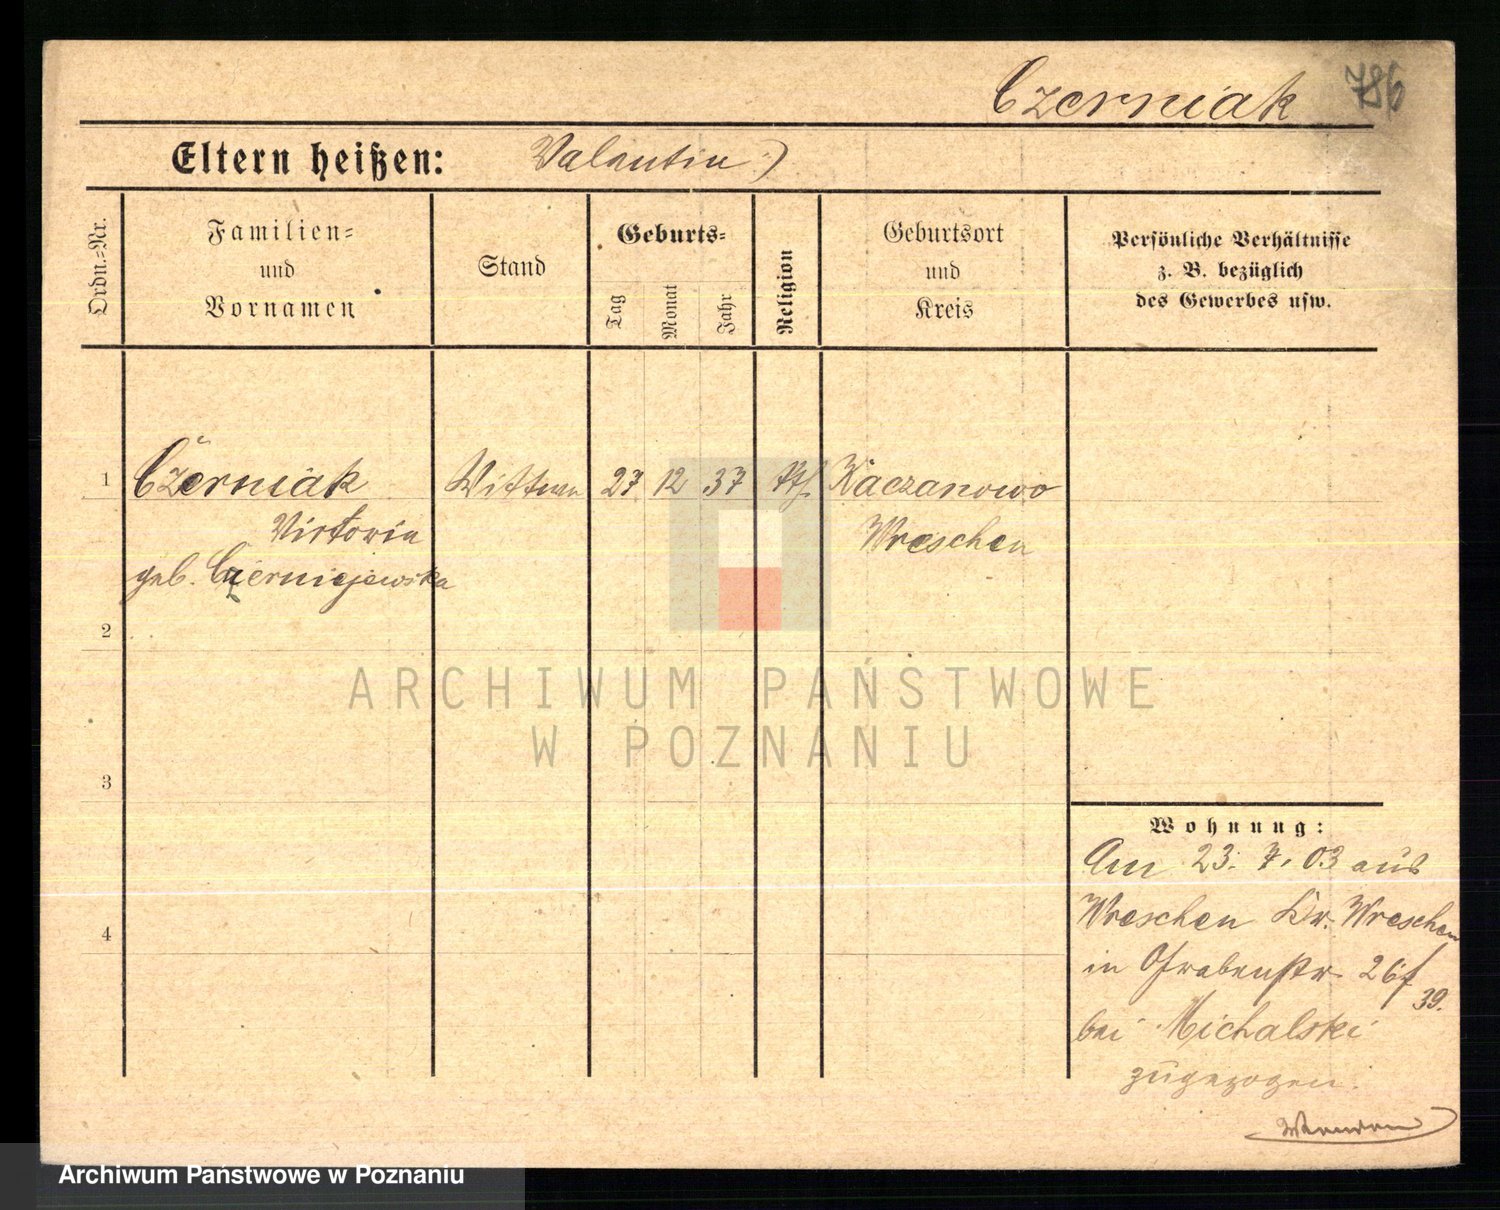 Czerniak 786
Eltern heißen: Valentin
Ordn.=Nr.
Familien=
und
Vornamen
Stand
Geburts=
Tag
Monat
Jahr
Religion
Geburtsort
und
Kreis
Persönliche Verhältnisse
z. B. bezüglich
des Gewerbes usw.
1 Czerniak 27 12 37 Kaczanowo
Victoria Wreschen
geb. Czerniejewska
2
3
4
Wohnung:
Am 23. 7. 03 aus
Wreschen Kr. Wreschen
in Grabenstr 26
39.
bei Michalski
zugezogen.
ARCHIWUM PAŃSTWOWE
W POZNANIU
Archiwum Państwowe w Poznaniu